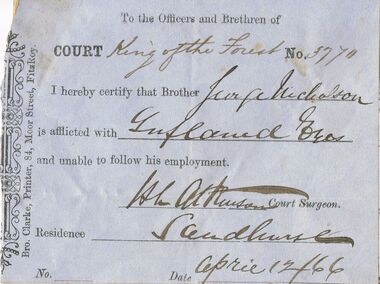 To the Officers and Brethren of
COURT King of the Forest No. 3770
I hereby certify that Brother George Nicholson
is afflicted with Inflamed Eyes
and unable to follow his employment.
H L Atkinson Court Surgeon.
Residence Sandhurst
No. Date April 12/66
Bro. Clarke, Printer, 84, Moor Street, FitzRoy.